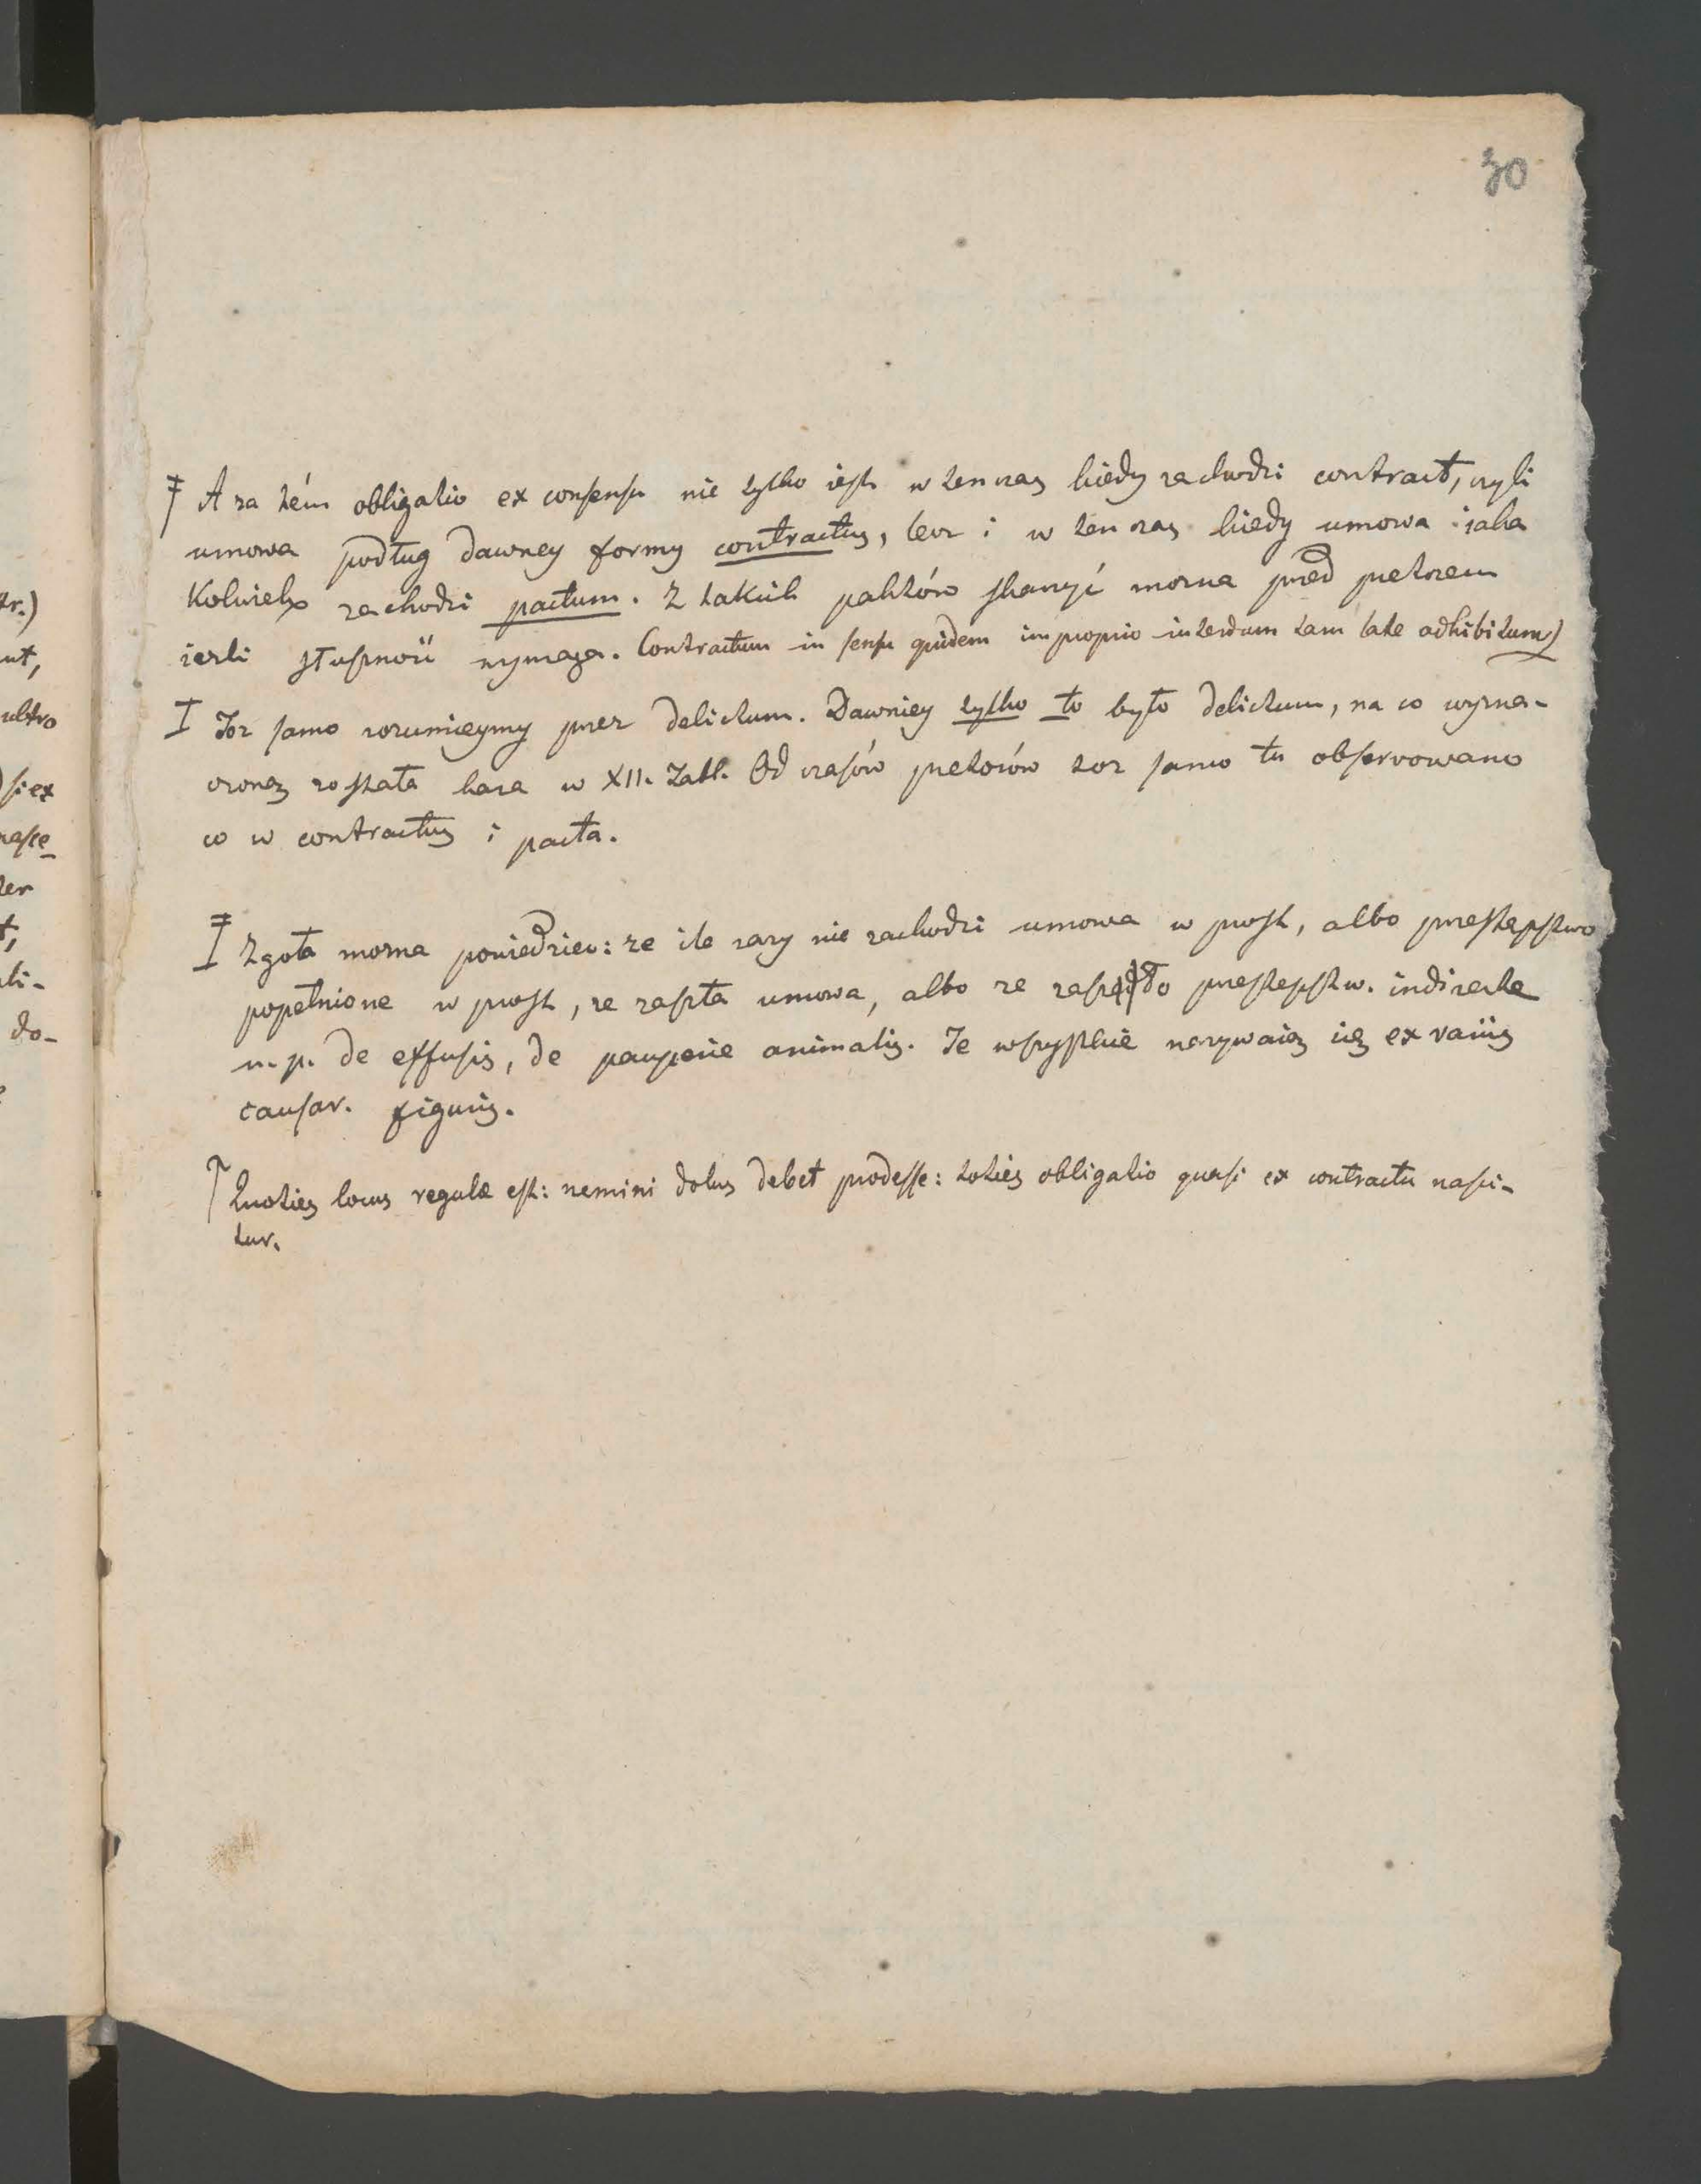 30
‡ A za tém obligatio ex consensu nie tylko iest w ten czas kiedy zachodzi contract, czyli
umowa podług dawney formy contractus, lecz i w ten czas kiedy umowa iaka
Kolwiek zachodzi pactum. Z takich paktów skarżyć można przed pretorem
ieżli słuszność wymaga. Contractum in sensu quidem improprio interdum tam late adhibitum)
I Toż samo rozumieymy przez delictum. Dawniey tylko to było delictum, na co wyzna-
czoną została kara w XII. Tabl. Od czasów pretorów toż samo tu observowano
co w contractus i pacta.
‡ Zgoła można powiedzieć: że ile razy nie zachodzi umowa w prost, albo przestępstwo
popełnione w prost, że zaszła umowa, albo że zaszło przestępstw. indirecte
n. p. de effusis, de pauperie animalis. Te wszystkie nazywaią się ex variis
causar. figuris.
Quoties locus regulæ est: nemini dolus debet prodesse: toties obligatio quasi ex contractu nasci-
tur.
tr.)
nt,
ultro
)si ex
nasce
ter
t,
li-
do-